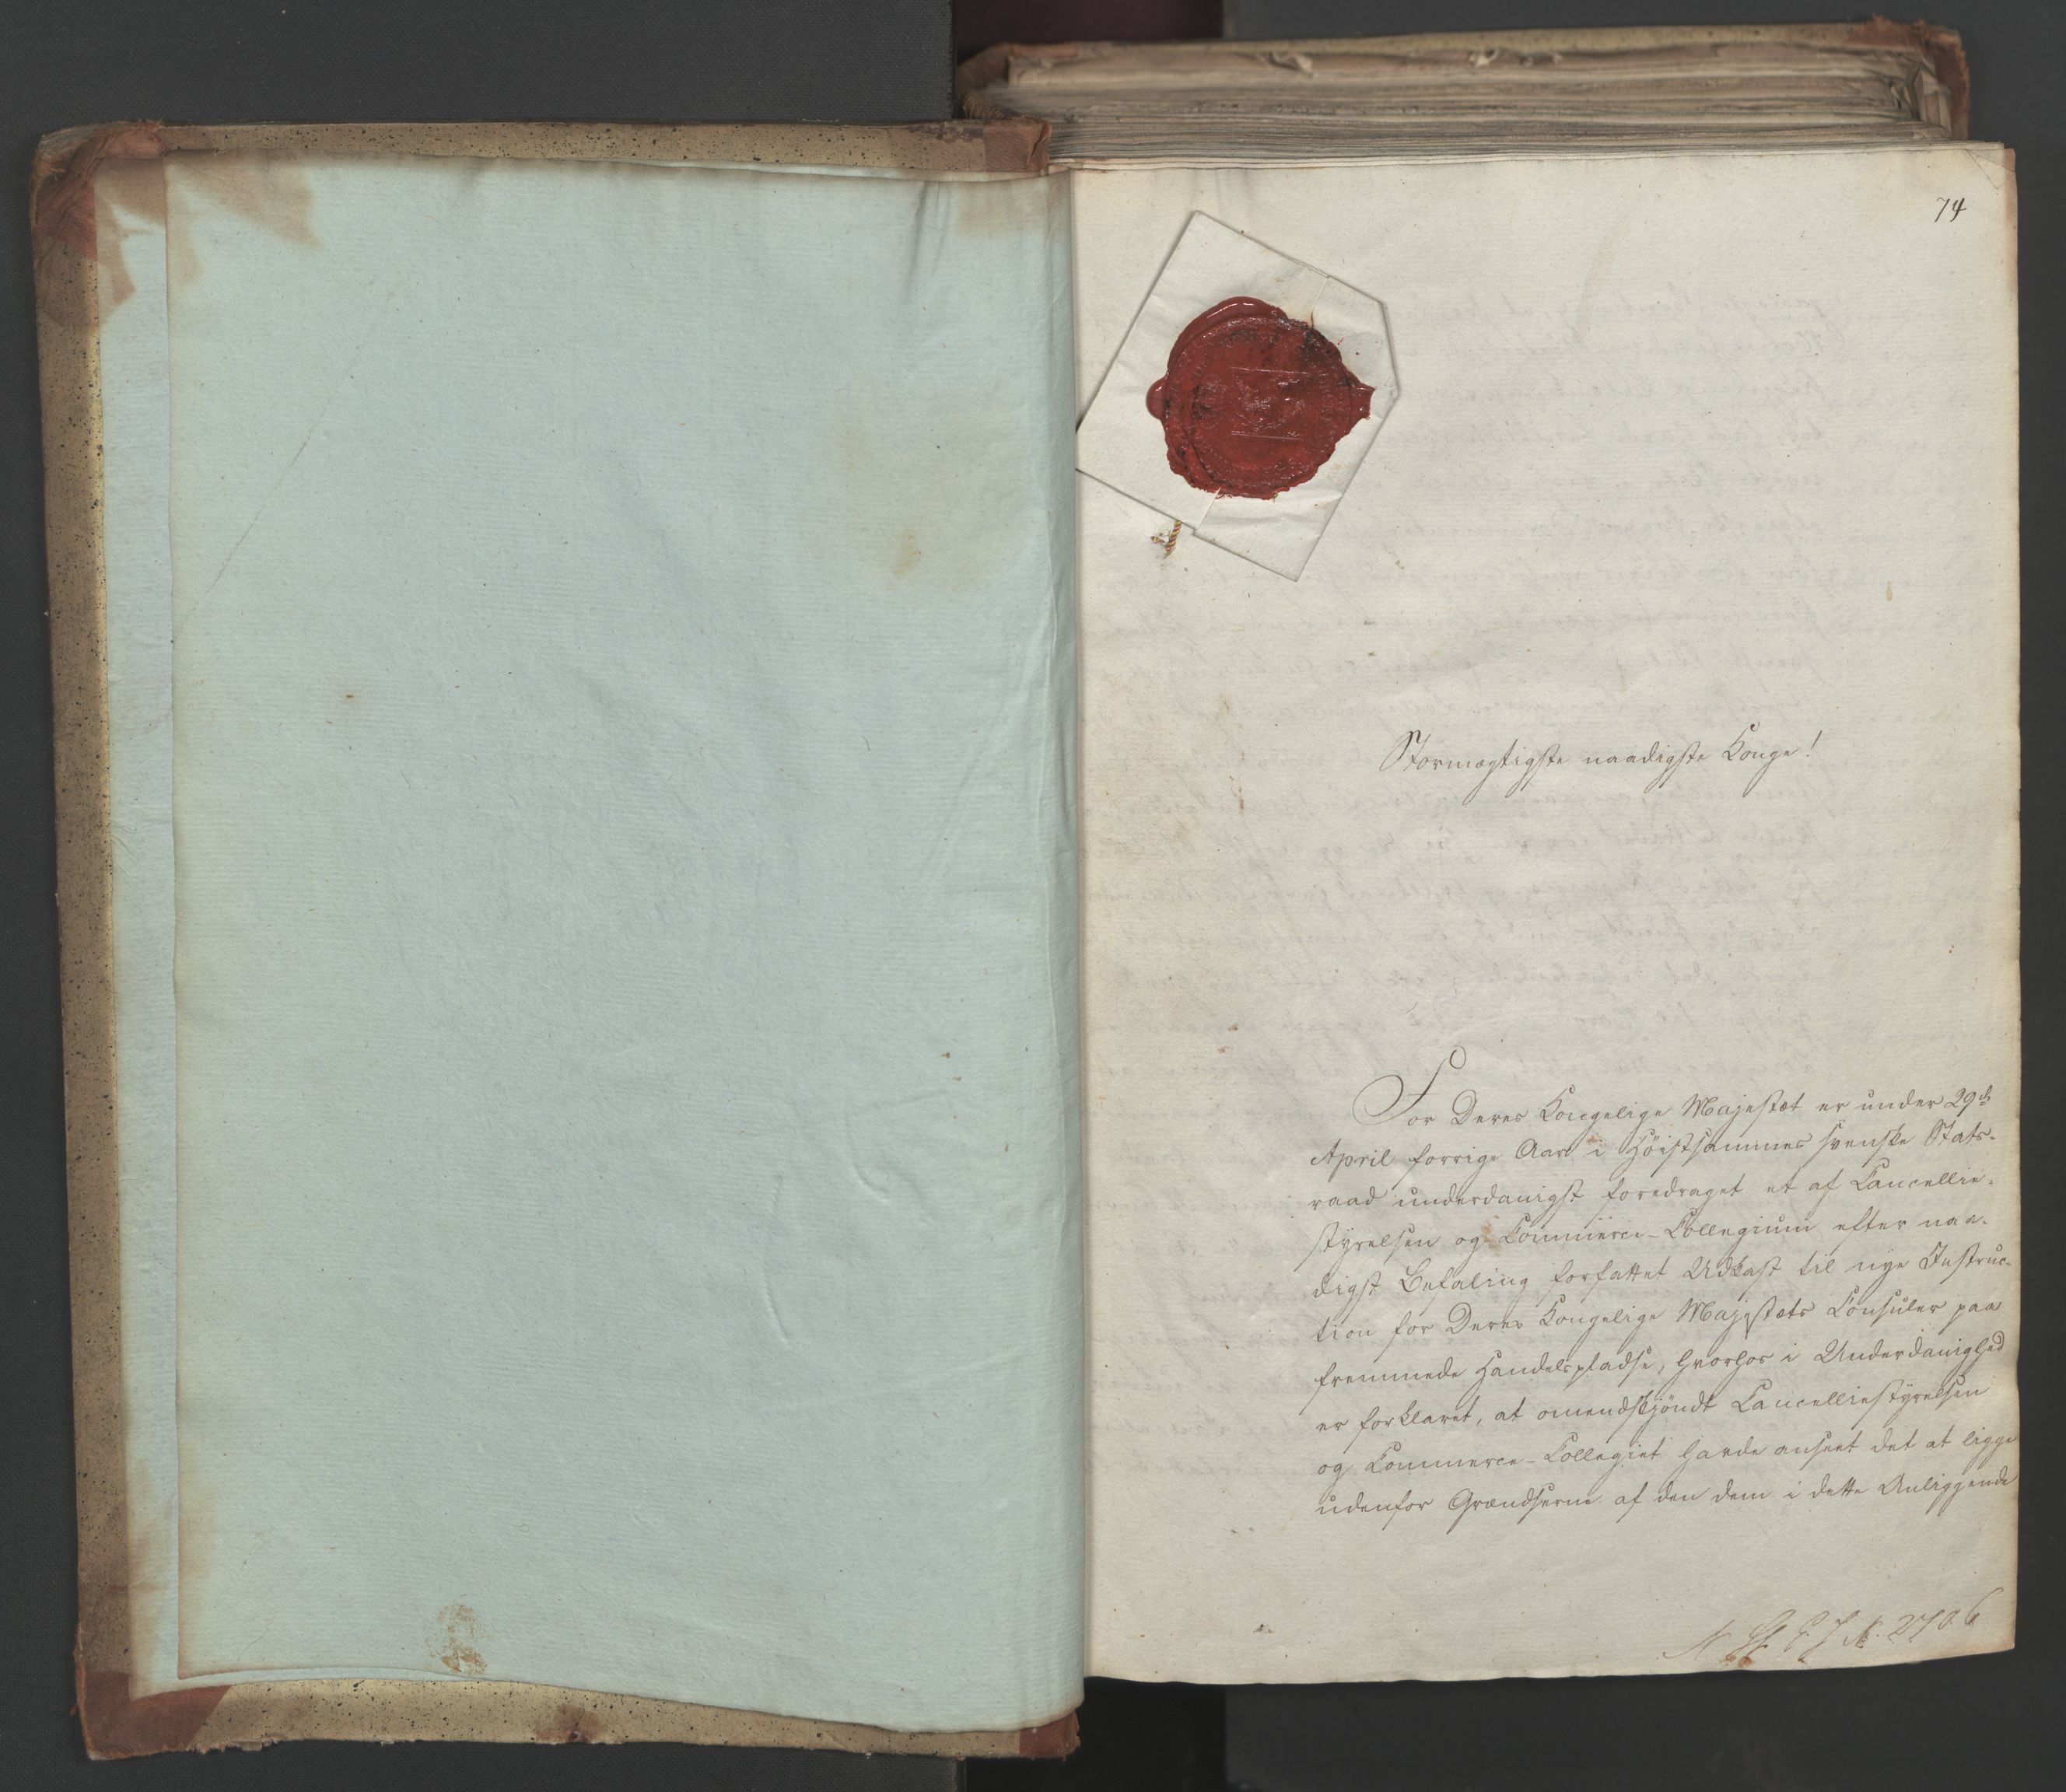 74
Stormægtigste naadigste Konge!
For Deres Kongelige Majestæt er under 29de
April forrige Aar i Høistsammes svenske Stats-
raad underdanigst foredraget et af Cancellie-
styrelsen og Commerce-Collegium efter naa-
digst Befaling forfattet Udkast til nye Instruc-
tion for Deres Kongelige Majestæts Consuler paa
fremmede Handelspladse, hvorhos i Underdanighed
er forklaret, at omendskjøndt Cancelliestyrelsen
og Commerce-Collegiet havde anseet det at ligge
udenfor Grændserne af den dem i dette Anliggende
2706